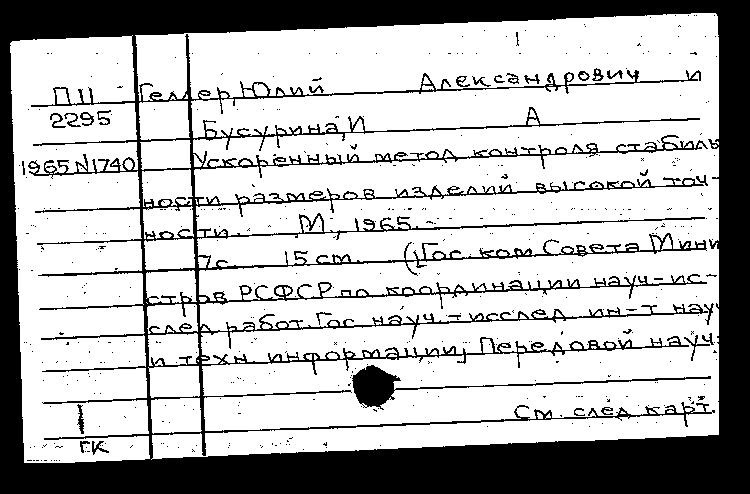 П11 Геллер, Юлий Александрович и
2295 Бусурина, И А
1965 N1740 Ускоренный метод контроля стабиль
ности размеров изделий высокой точ-
ности. М., 1965.-
7с. 15 см. (Гос. ком. Совета Мини
стров РСФСР по координации науч-ис-
след работ. Гос науч.-исслед ин-т науч
и техн. информации, Передовой науч-
См. след карт.
ГК